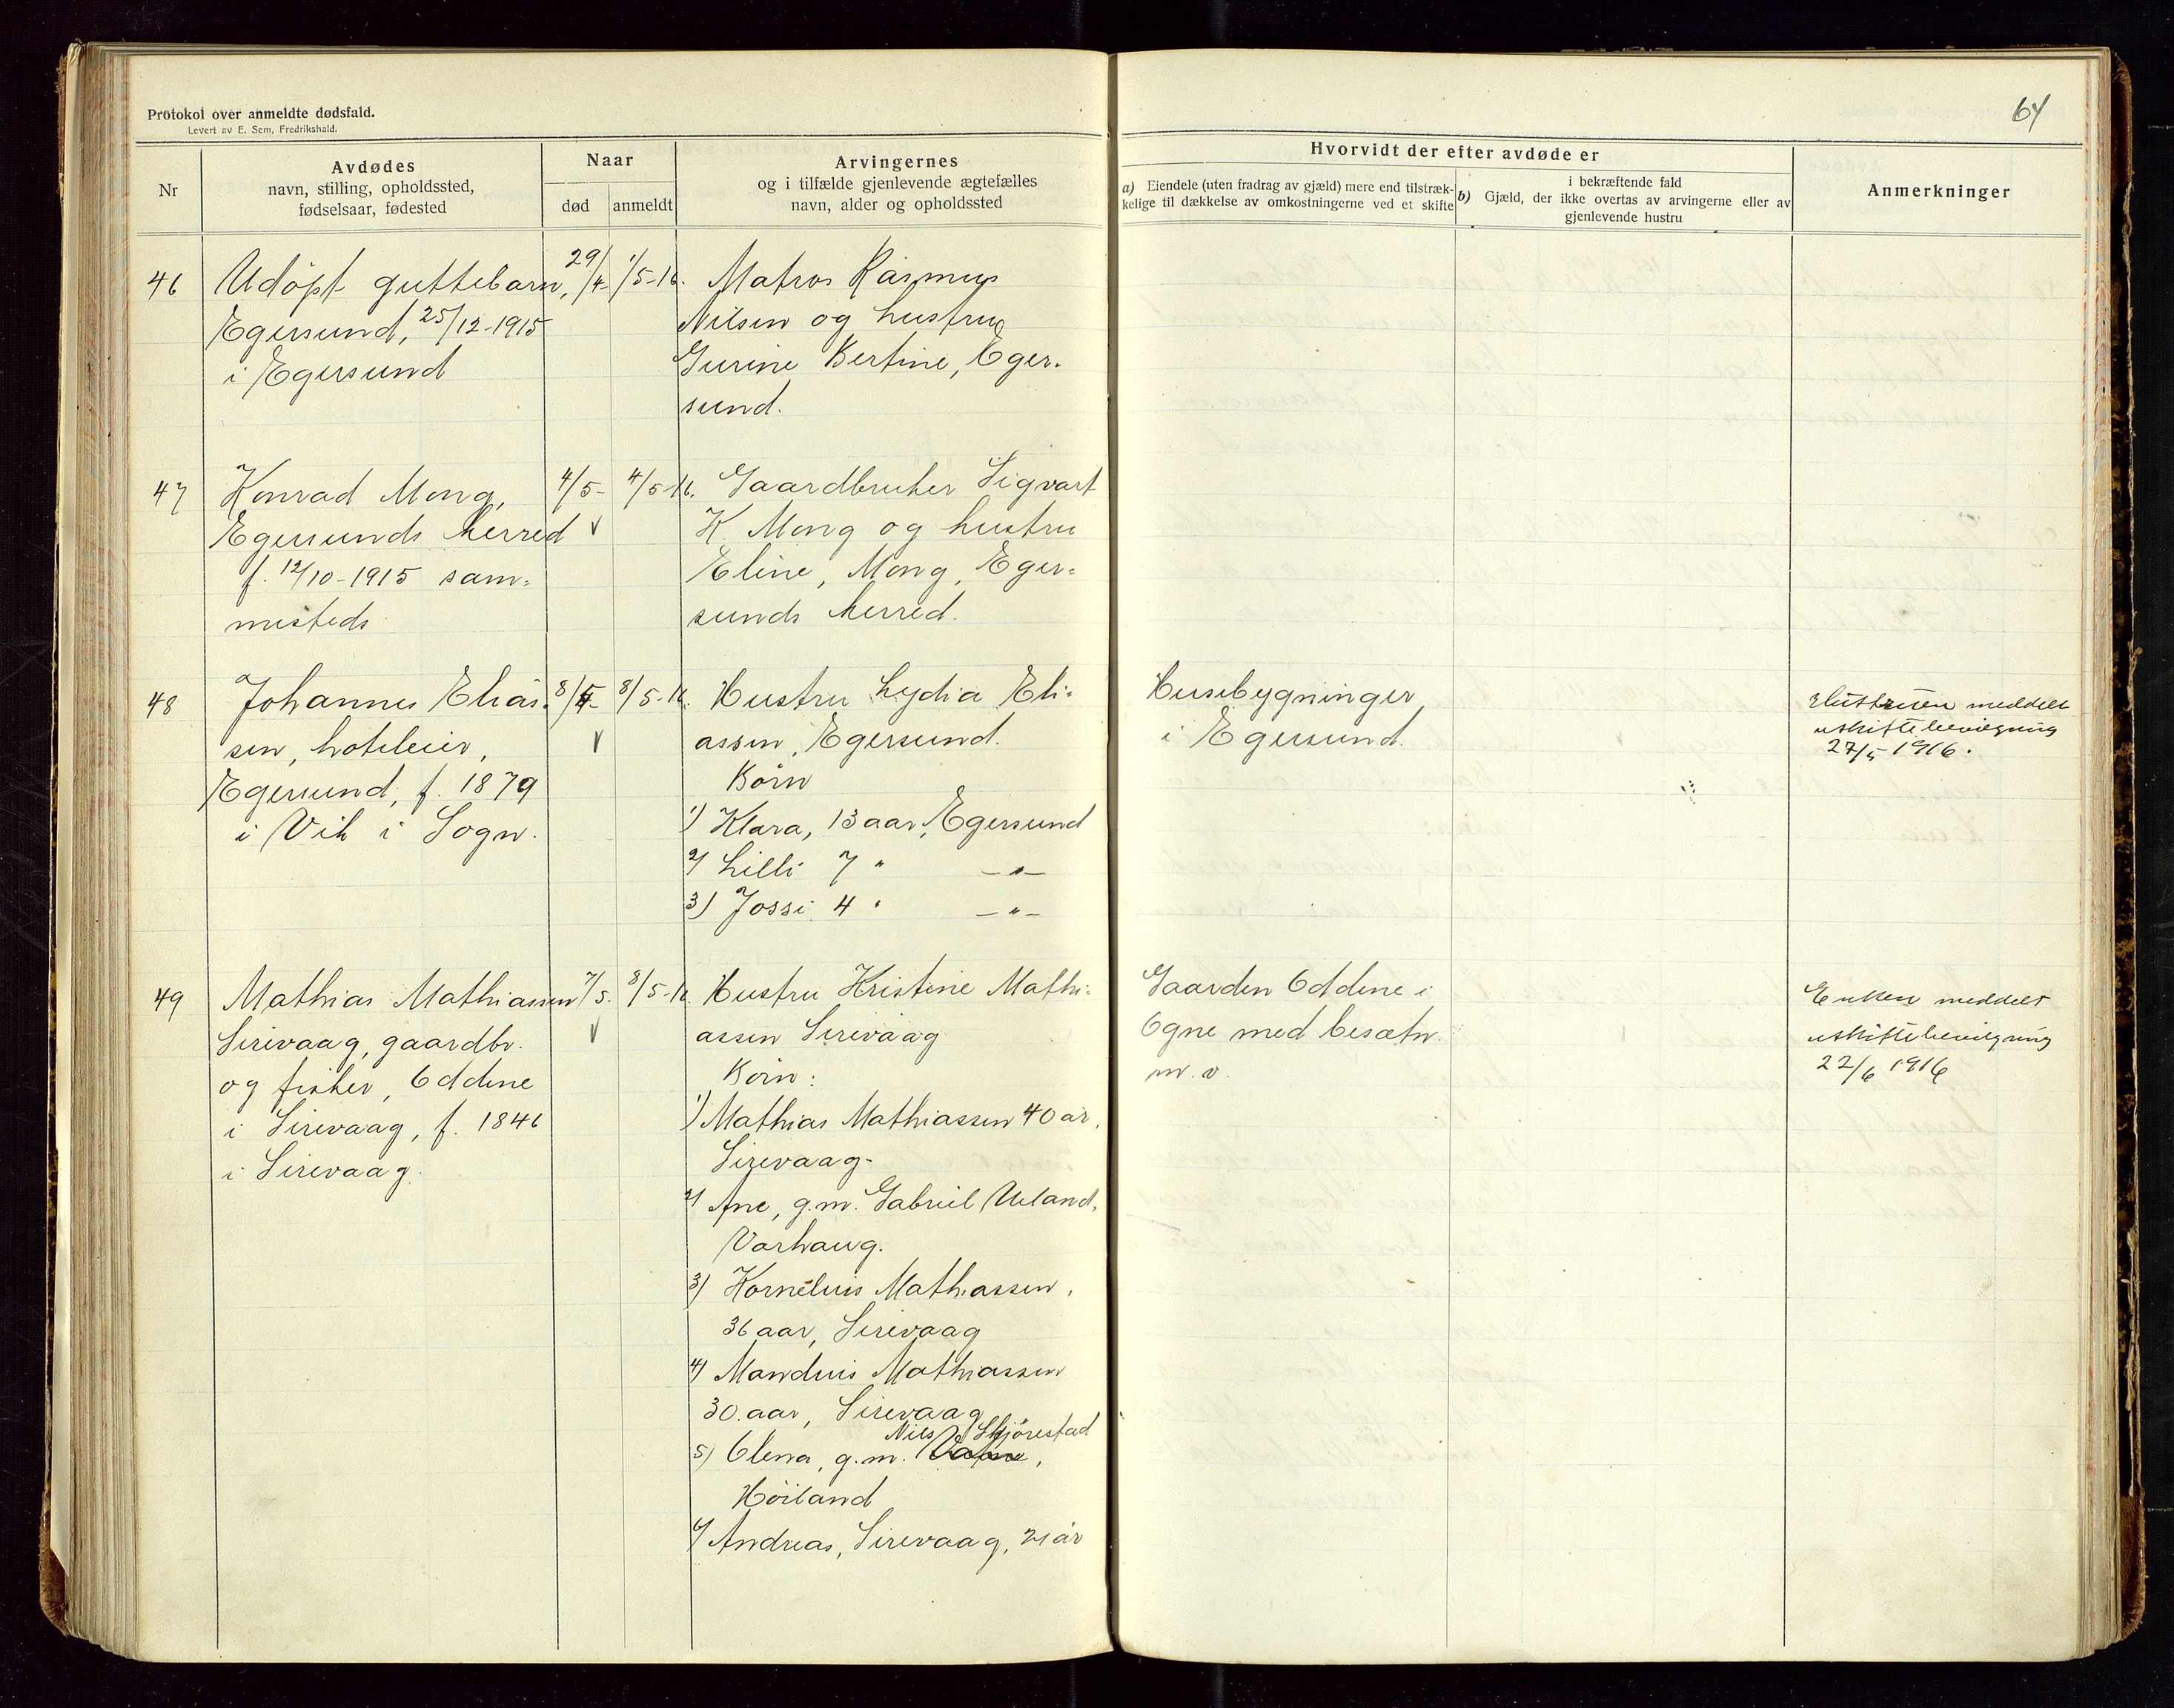 Protokol over anmeldte dødsfald.
Levert av E. Sem, Fredrikshald.
64
Nr
Avdødes
navn, stilling, opholdssted,
fødselsaar, fødested
Naar
død
anmeldt
Arvingernes
og i tilfælde gjenlevende ægtefælles
navn, alder og opholdssted
Hvorvidt der efter avdøde er
a) Eiendele (uten fradrag av gjæld) mere end tilstræk-
kelige til dækkelse av omkostningerne ved et skifte
i bekræftende fald
b) Gjæld, der ikke overtas av arvingerne eller av
gjenlevende hustru
Anmerkninger
46
Udøpt guttebarn,
Egersund, 25/12-1915
i Egersund
29/4-
1/5-16.
Matros Rasmus
Nilsen og hustru
Gurine Bertine, Eger-
sund.
47
Konrad Mong,
Egersunds herred
f. 12/10-1915 sam-
mesteds
4/5-
4/5-16.
Gaardbruker Sigvart
K. Mong og hustru
Eline, Mong, Eger-
sunds herred.
48
Johannes Elias-
sen, hoteleier,
Egersund, f. 1879
i Vik i Sogn.
8/5-
8/5-16.
Hustru Lydia Eli-
assen, Egersund.
Børn
1) Klara, 13 aar, Egersund
2) Lilli 7 " —"—
3) Jossi 4 " —"—
Husebygninger
i Egersund.
Hustruen meddelt
uskiftebevilgning
27/5 1916.
49
Mathias Mathiassen
Sirevaag, gaardbr.
og fisker, Oddene
i Sirevaag, f. 1846
i Sirevaag.
7/5.
8/5-16.
Hustru Kristine Mathi-
assen Sirevaag
Børn:
1) Mathias Mathiassen 40 år,
Sirevaag-
2) Ane, g.m. Gabriel Ueland,
Varhaug.
3) Kornelius Mathiassen,
36 aar, Sirevaag
4) Mandius Mathiassen
30. aar, Sirevaag
Nils Skjørestad
5) Olena, g.m. Vatne,
Høiland
6) Andreas, Sirevaag, 21 år
Gaarden Oddene i
Ogne med besætn.
m. v.
Enken meddelt
uskiftebevilgning
22/6 1916